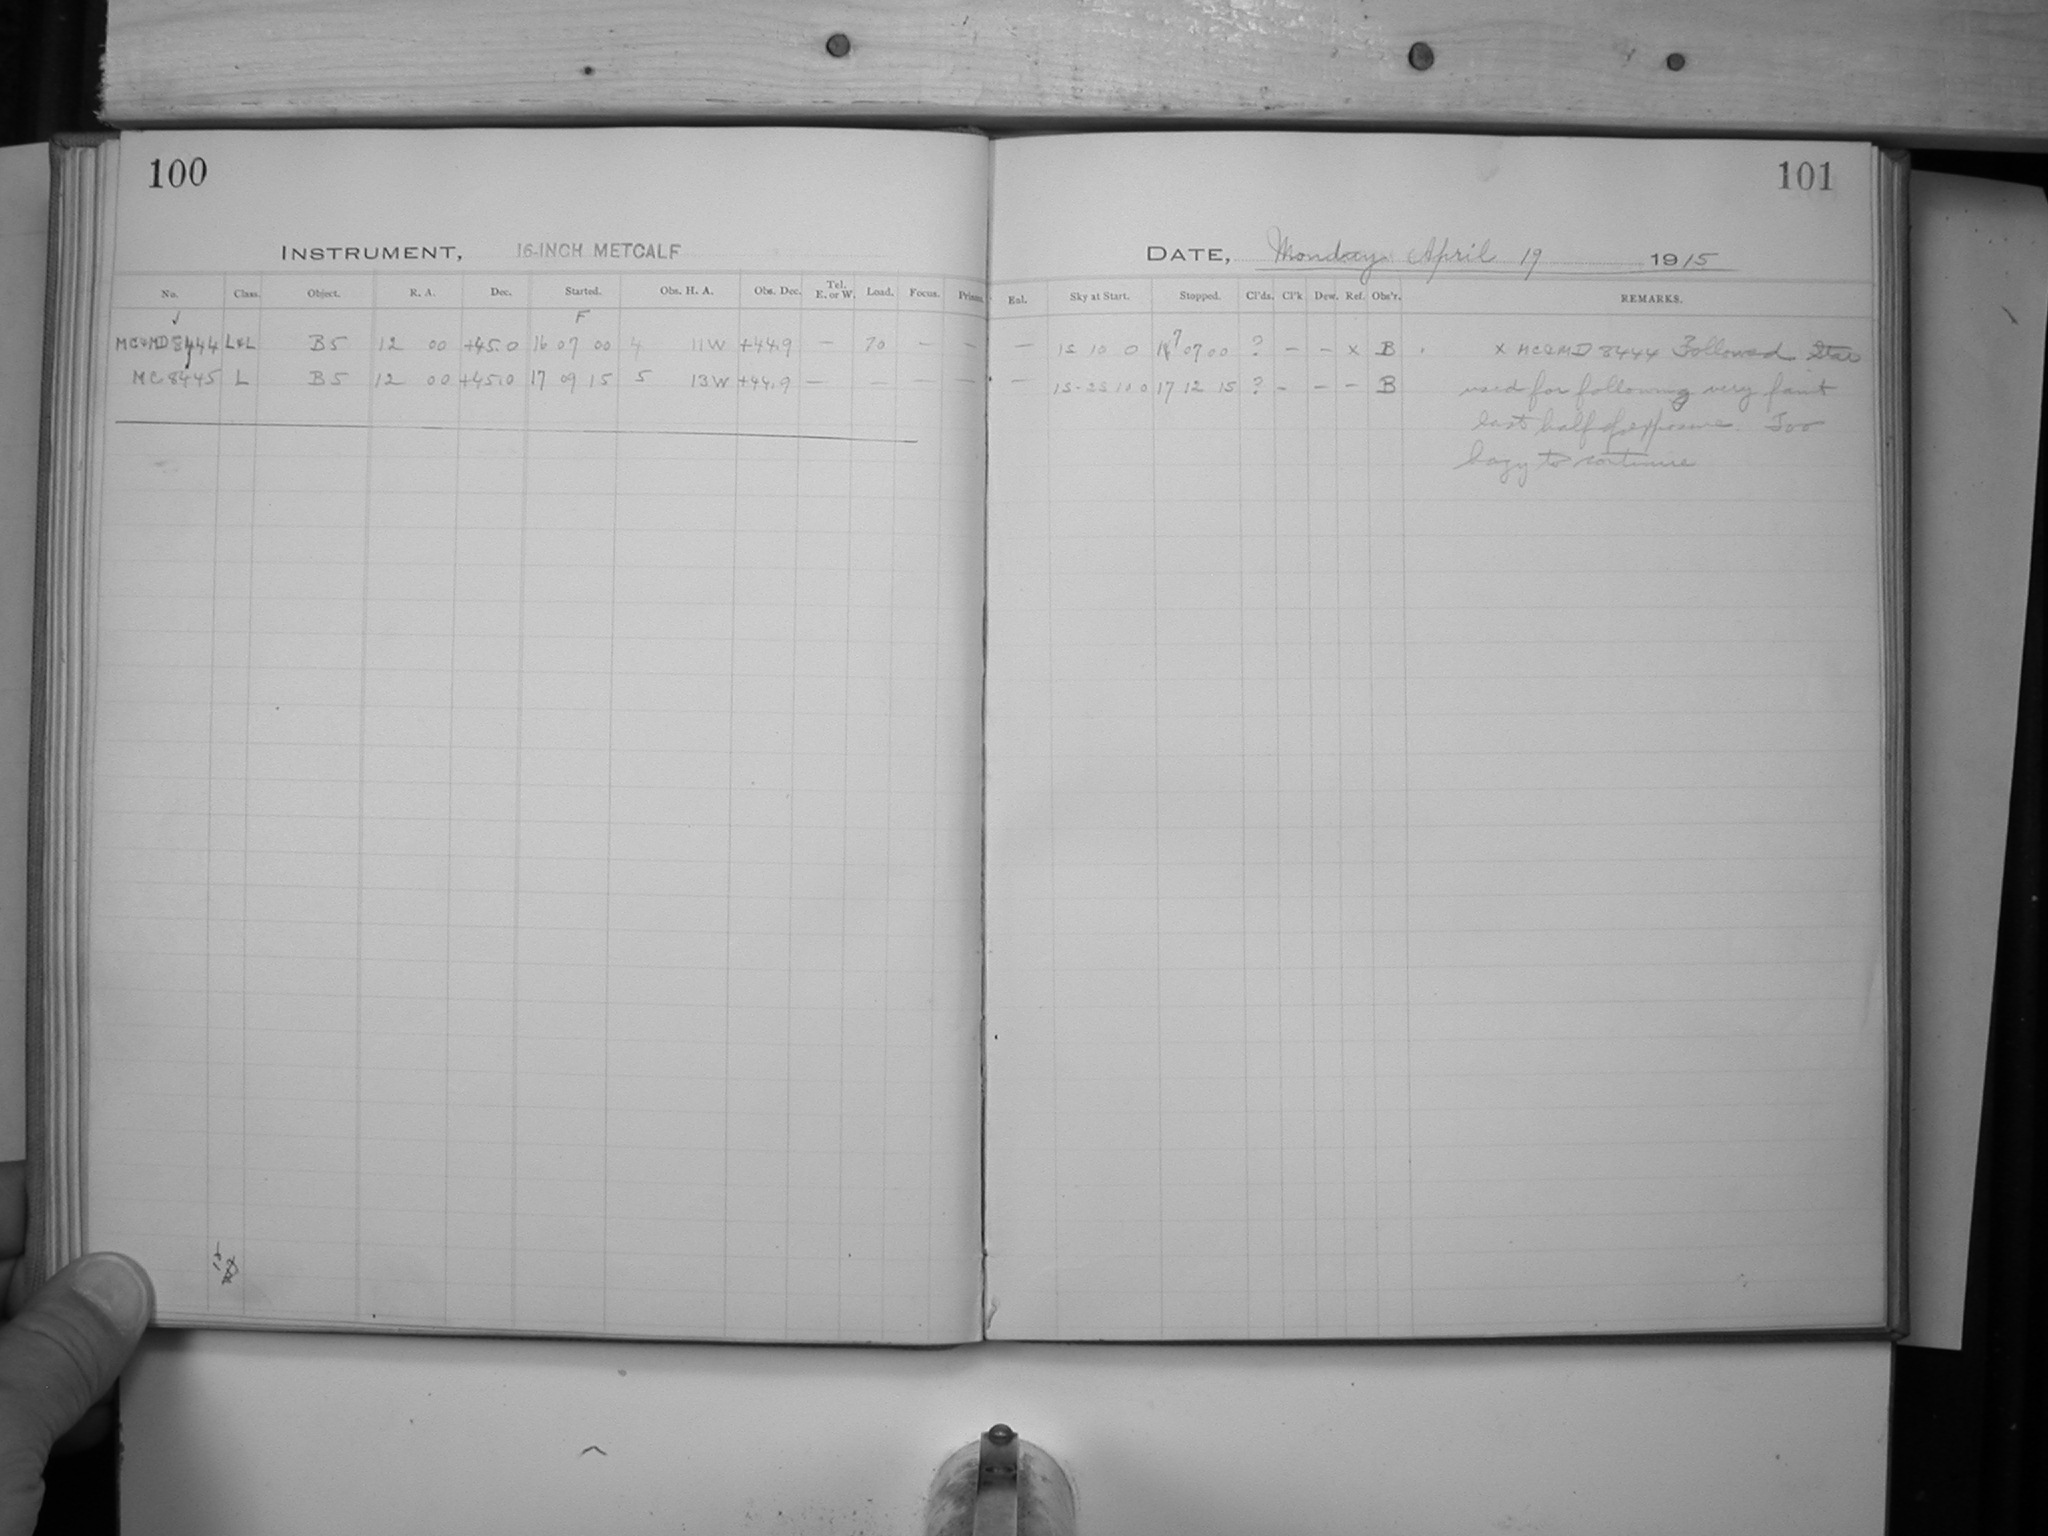 100
INSTRUMENT, 16-INCH METCALF
No. Class. Object. R. A. Dec. Started. Obs. H. A. Obs. Dec. Tel. E. or W. Load. Focus. Prism.
F
MC&MD 8444 L&L B5 12 00 +45.0 16 07 00 4 11W +44.9 — 70 — —
MC 8445 L B5 12 00 +45.0 17 09 15 5 13W +44.9 — — — —
101
DATE, Monday April 19 1915
Eml. Sky at Start. Stopped. Cl'ds. Cl'k Dew. Ref. Obs'r. REMARKS.
— 1S 10 0 17 07 00 ? — — x B x MC&MD 8444 Followed Star
— 1S-2S 10 0 17 12 15 ? — — — B used for following very faint
last half of exposure. Too
hazy to continue